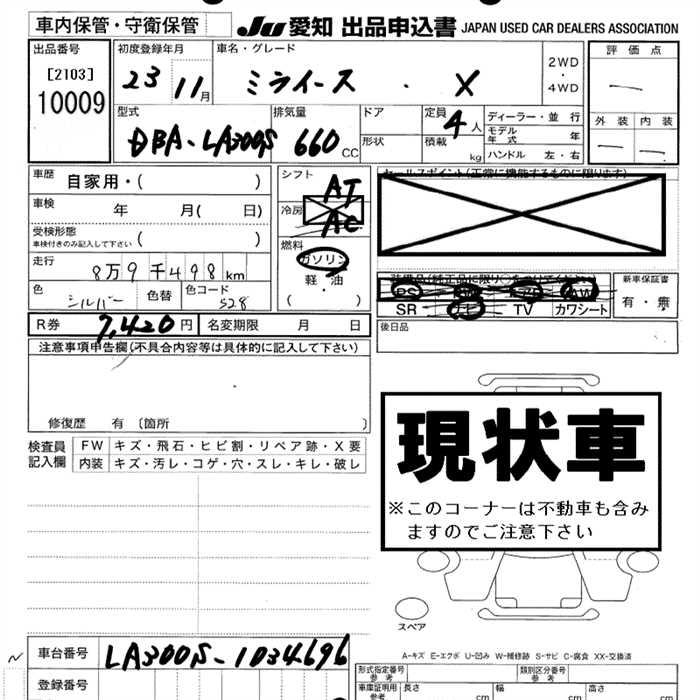 車内保管・守衛保管
JU 愛知 出品申込書 JAPAN USED CAR DEALERS ASSOCIATION
出品番号
[2103]
10009
初度登録年月
23 11月
車名・グレード
ミライース . X
2WD
・
4WD
評価点
外装 内装
型式
DBA-LA300S
排気量
660 CC
ドア
形状
定員
4人
積載 kg
ディーラー・並行
モデル年式 年
ハンドル 左・右
車歴
自家用・( )
車検 年 月( 日)
受検形態
車検付きのみ記入して下さい ( )
走行
8万9千498km
色
シルバー
色替
色コード
S28
シフト
AT
冷房
AC
燃料
ガソリン
軽・油
( ・ )
セールスポイント(正常に機能するものに限ります)
装備品(純正品に限り○をつけてください)
PS AW
SR TV カワシート
新車保証書
有・無
後日品
R券 7,420円
名変期限 月 日
注意事項申告欄(不具合内容等は具体的に記入して下さい)
修復歴 有 〔箇所 〕
検査員記入欄
FW キズ・飛石・ヒビ割・リペア跡・X要
内装 キズ・汚レ・コゲ・穴・スレ・キレ・破レ
現状車
※このコーナーは不動車も含み
ますのでご注意下さい
スペア
A-キズ E-エクボ U-凹み W-補修跡 S-サビ C-腐食 XX-交換済
車台番号 LA300S-1034696
登録番号
形式指定番号
参考
類別区分番号
参考
車庫証明用
参考
長さ cm
幅 cm
高さ cm